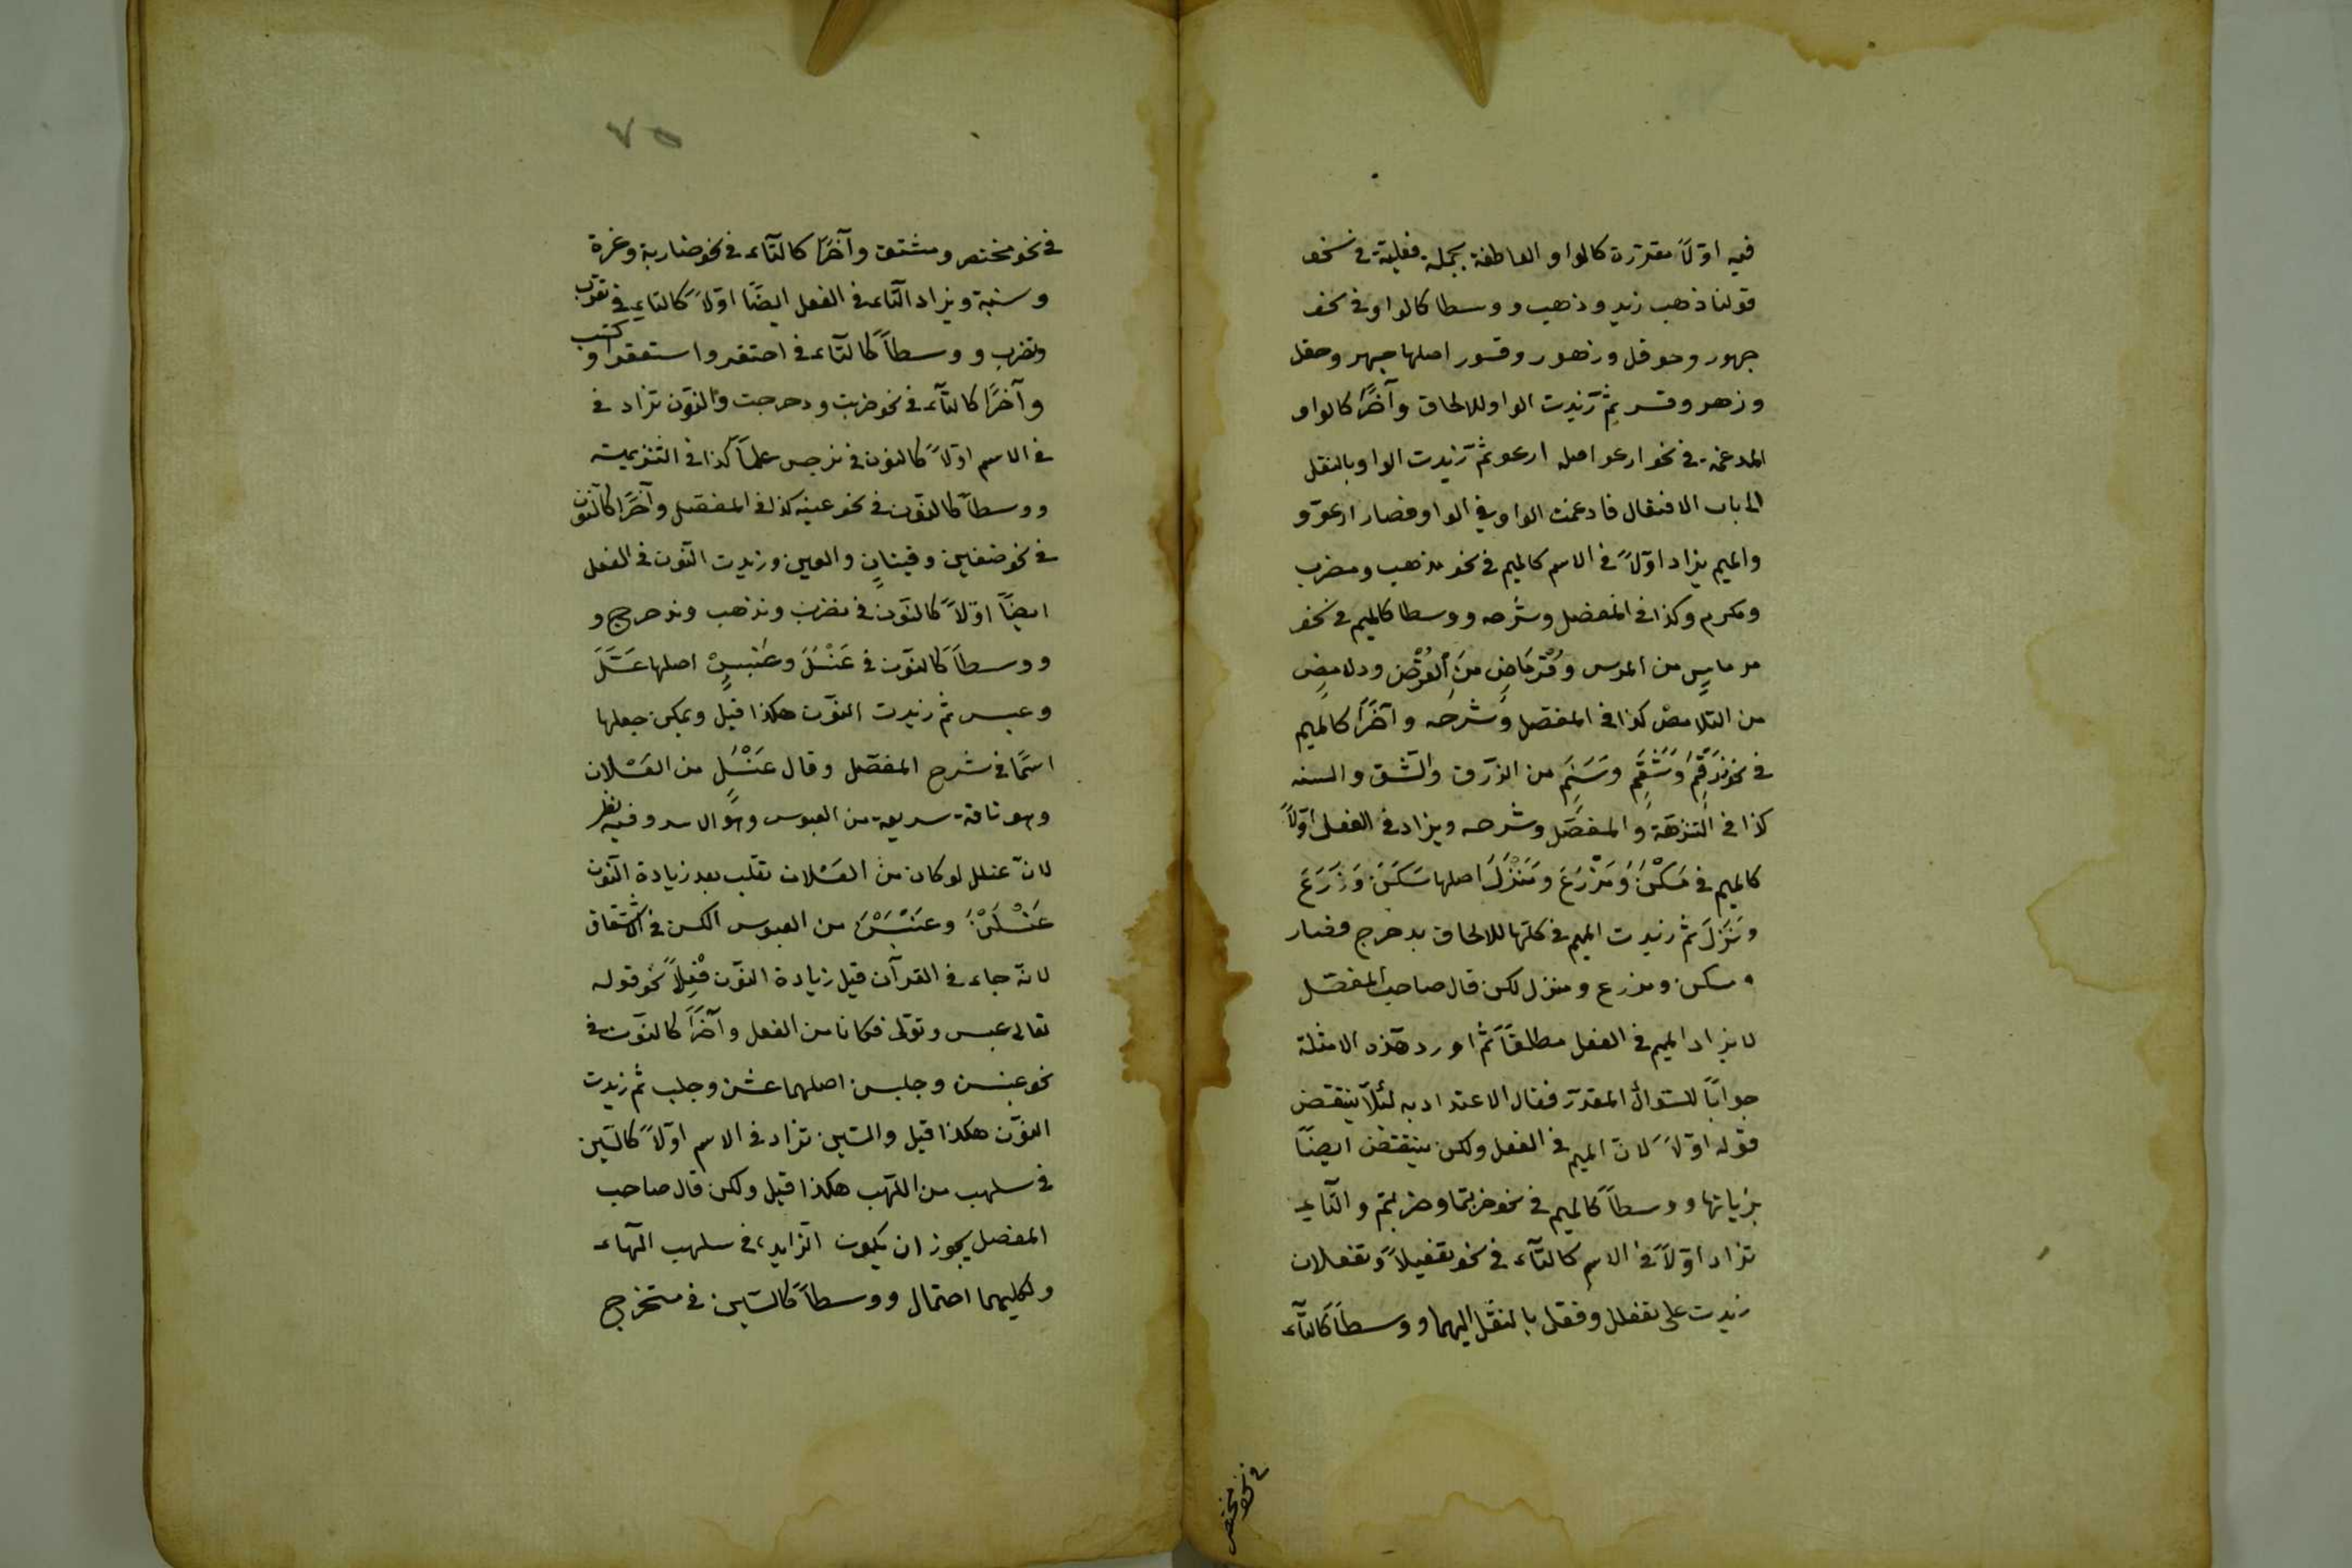 فيه اوّلاً مقررة كالواو العاطفة بجملة فعلية فى نحو
قولنا ذهب زيد وذهب ووسطا كالواو فى نحو
جهور وحوقل وزهور وقسور اصلها جهر وحقل
وزهر وقسر ثم زيدت الواو للالحاق وآخرًا كالواو
المدغمة فى نحو ارعو اصله ارعو ثمّ زيدت الواو بالنقل
الى باب الافتعال فادغمت الواو فى الواو فصار ارعوّ و
والميم يزاد اوّلاً فى الاسم كالميم فى نحو مذهب ومضرب
ومكرم وكذا فى المفصل وشرحه ووسطا كالميم فى نحو
من المرس وقرماض من القرض ودلامض
من التلامض كذا فى المفصّل وشرحه وآخرًا كالميم
فى نحو زرقم وشقم وستهم من الزرق والشق والسته
كذا فى النزهة والمفصّل وشرحه ويزاد فى الفعل اوّلاً
كالميم فى مَسْكَنَ ومَزْرَعَ ومَنْزَلَ اصلها سَكَنَ وَزَرَعَ
ونَزَلَ ثمّ زيدت الميم فى كلّها للالحاق بدحرج فصار
مسكن ومزرع ومنزل لكن قال صاحب المفصّل
لا يزاد الميم فى الفعل مطلقًا ثمّ اورد هذه الامثلة
جوابًا للسّوال المقدّر فقال الاعتداد به لئلّا ينتقض
قوله اوّلاً لانّ الميم فى الفعل ولكن ينتقض ايضًا
بزيادتها ووسطاً كالميم فى نحو ضربتما وضربتم والتاء
تزاد اوّلاً فى الاسم كالتّاء فى نحو تفعيلاً وتفعلان
زيدت على تفعلل وفعل بالنقل اليهما ووسطاً كالتّاء
فى نحو مختص
٧٥
فى نحو مختصر ومشتق وآخرًا كالتّاء فى نحو ضاربة وغرة
وسنبة ويزاد التّاء فى الفعل ايضًا اوّلاً كالتاء فى تقرب
وتضرب ووسطاً كالتّاء فى احتقر واستعقر واكتسب
وآخرًا كالتّاء فى نحو ضربت ودحرجت والنّون تزاد فى
فى الاسم اوّلاً كالنون فى نرجس علمًا كذا فى
ووسطاً كالنّون فى نحو كذا فى المفصّل وآخرًا كالنّون
فى نحو ضعفين وقينان والعين وزيدت النّون فى الفعل
ايضًا اوّلاً كالنّون فى نضرب ونذهب وندحرج و
ووسطاً كالنّون فى عَنْسَلَ وعَنْبَسٍ اصلها عَسَلَ
وعبس ثمّ زيدت النّون هكذا قيل ويمكن جعلها
اسمًا فى شرح المفصّل وقال عَنْسَل من العَسْلان
وهو ناقة سريعة من العبوس وهو الاسد وفيه نظر
لانّ عنلل لو كان من العَسْلان تقلب بعد زيادة النّون
عَنْسَلَنْ وعَنْبَسَنْ من العبوس الكن فى الاشتقاق
لانّه جاء فى القرآن قبل زيادة النّون فعلاً نحو قوله
تعالى عبس وتولّى فكانا من الفعل وآخرًا كالنّون فى
نحو وجلبن اصلهما وجلب ثم زيدت
النّون هكذا قيل والسّين تزاد فى الاسم اوّلاً كالسّين
فى سلهب من اللهب هكذا قيل ولكن قال صاحب
المفصل يجوز ان يكون الزايد فى سلهب الهاء
ولكليهما احتمال ووسطاً كالسّين فى مستخرج